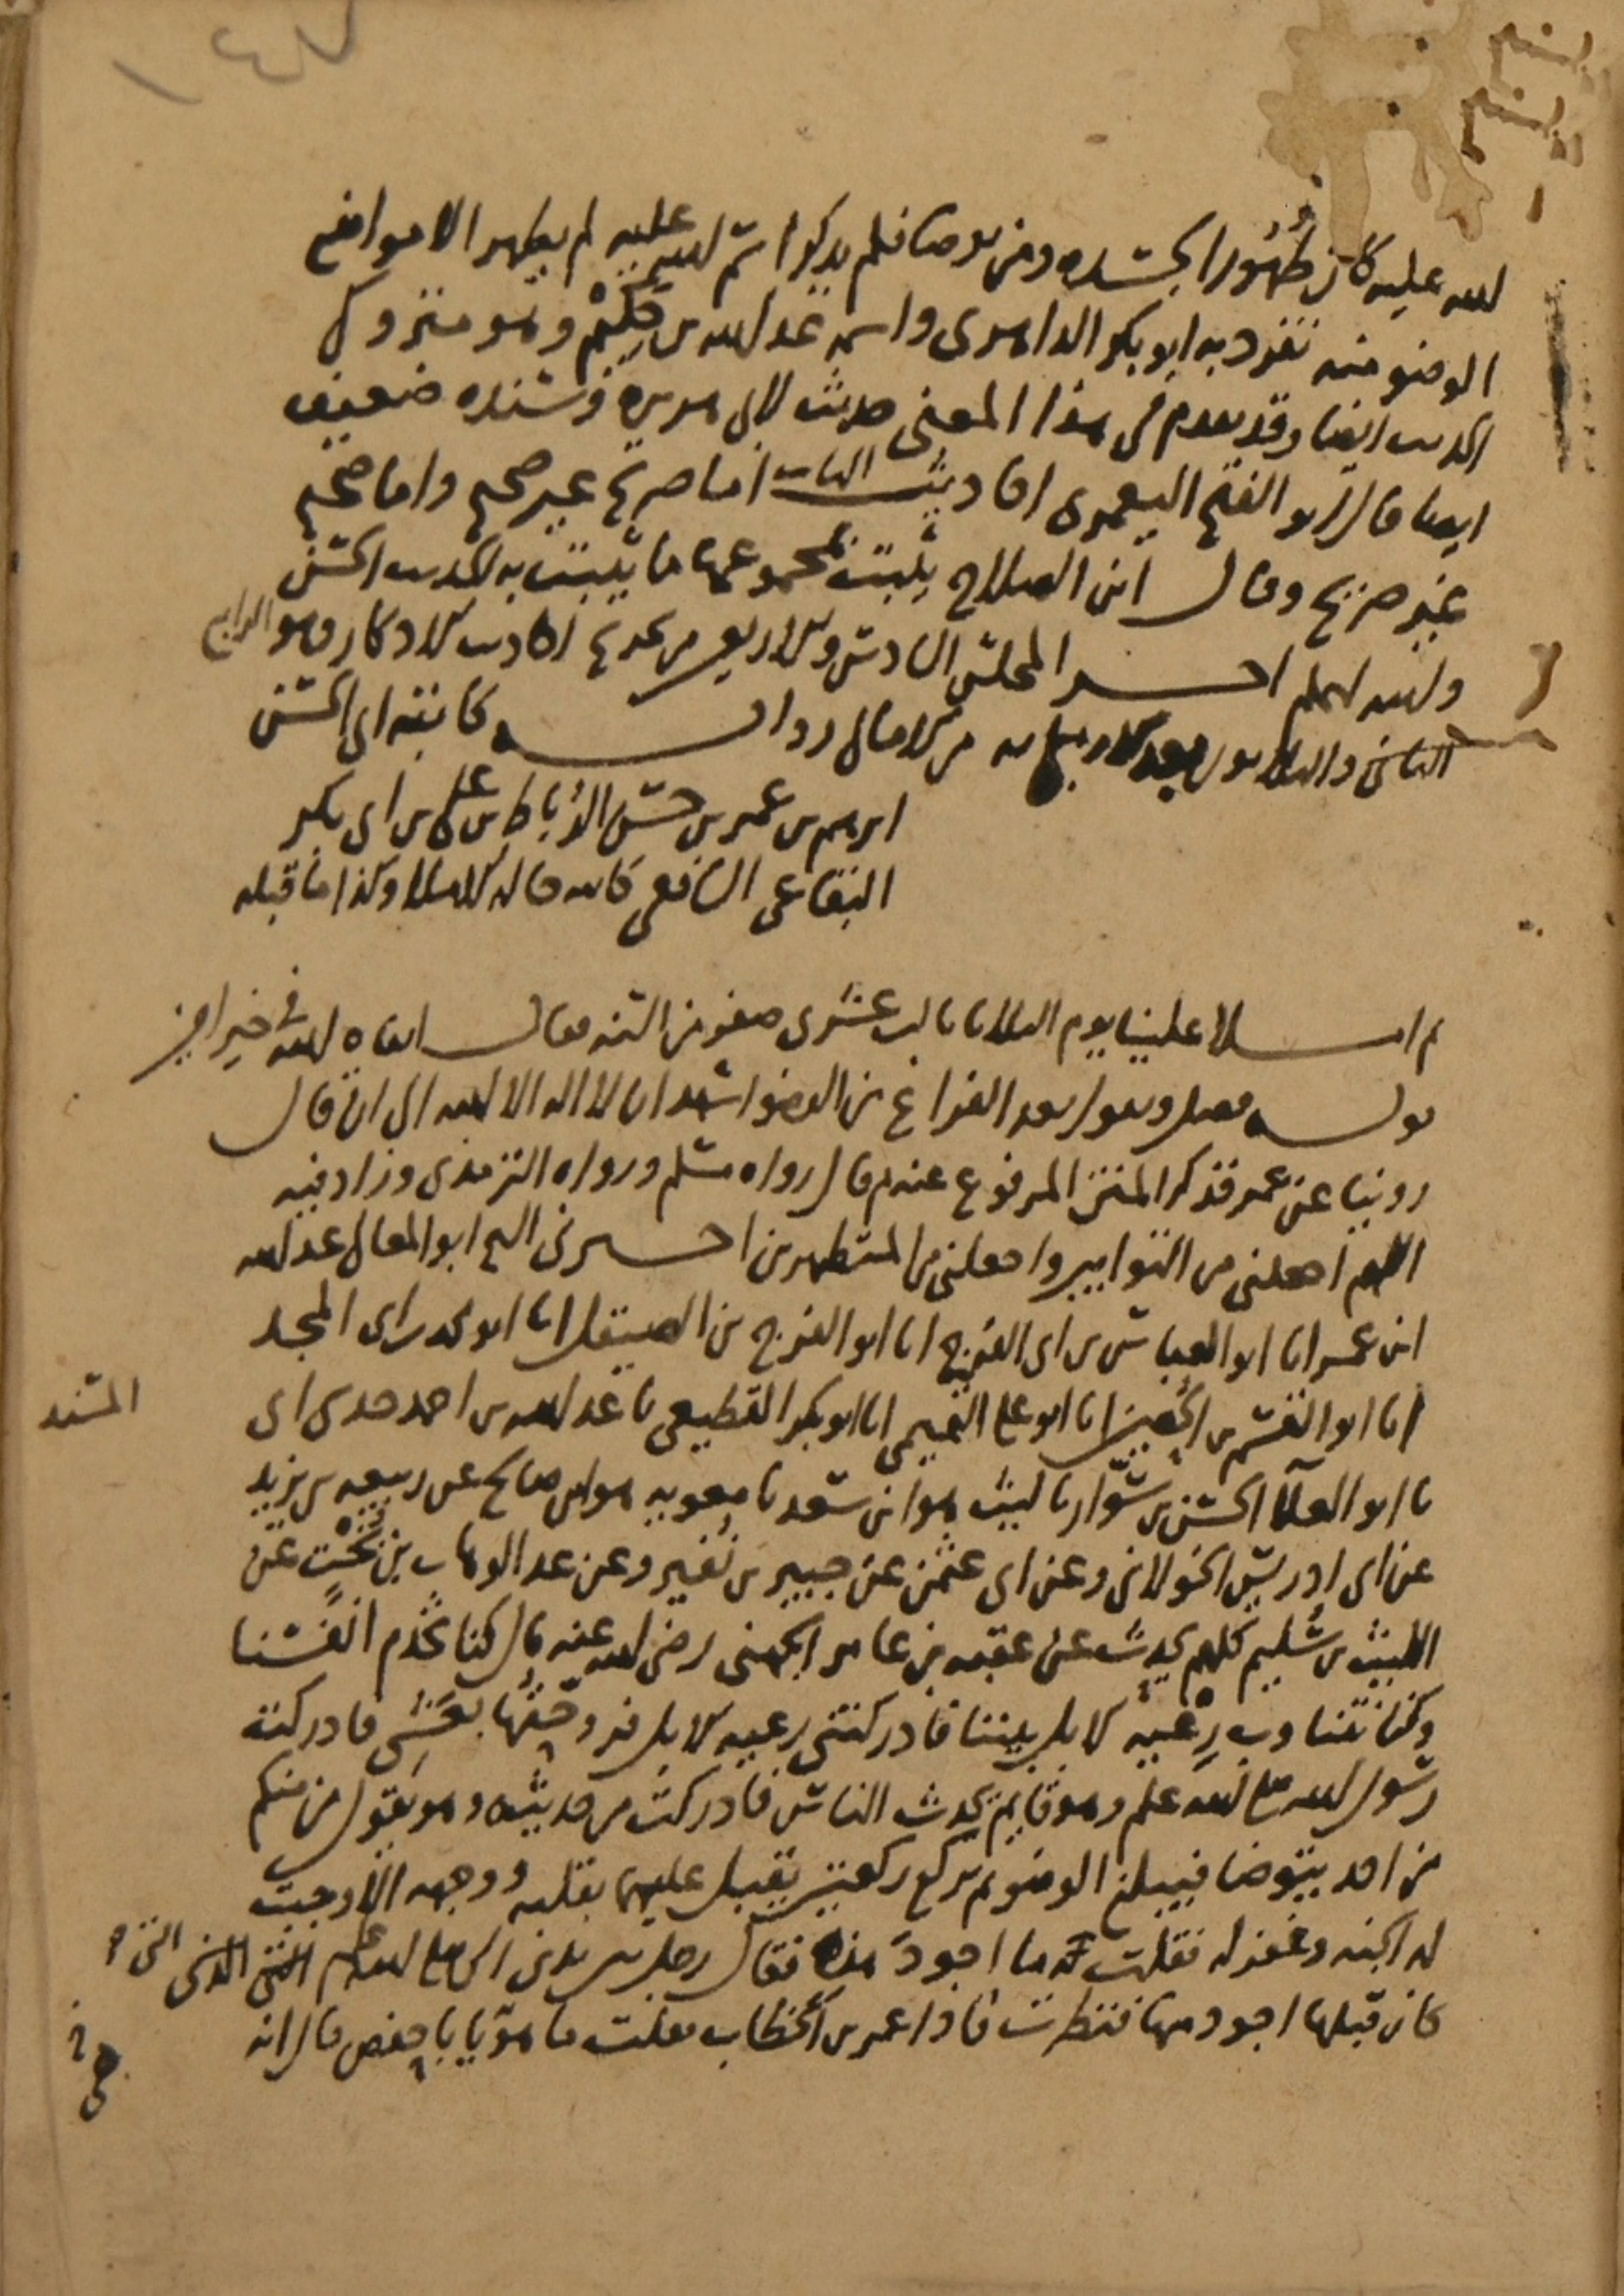 الله عليه كان طهورا لجسده ومن توضا فلم يذكر اسم الله عليه لم يطهر الا مواضع
الوضو منه تفرد به ابو بكر الداهري واسمه عبد الله بن حكيم وهو متروك
الحديث ايضا وقد تقدم في هذا المعنى حديث لابي هريرة وسنده ضعيف
ايضا قال ابو الفتح اليعمري احاديث الباب اما صريح غير صحيح واما صحيح
غير صريح وقال ابن الصلاح يثبت بمجموعها ما يثبت به الحديث الحسن
والله اعلم اخر المجلس السادس والاربعين من تخريج احاديث الاذكار وهو الرابع
الثاني والثلاثون بعد من الامالي رواية كاتبه ابي الحسن
ابرهيم بن عمر بن حسن الرباط بن علي بن ابي بكر
البقاعي الشافعي كاتبه حالة الاملا وكذا ما قبله
ثم املا علينا يوم الثلاثا ثالث عشري صفر من السنة فقال ابقاه الله في خير امين
قوله فصل ويقول بعد الفراغ من الوضو اشهد ان لا اله الا الله الى ان قال
روينا عن عمر فذكر المتن المرفوع عنه ثم قال رواه مسلم ورواه الترمذي وزاد فيه
اللهم اجعلني من التوابين واجعلني من المتطهرين اخبرني الشيخ ابو المعالي عبد الله
ابن عمر انا ابو العباس بن ابي الفرج انا ابو الفرج بن الصيقل انا ابو محمد بن ابي المجد
انا ابو القسم بن الحصين انا ابو علي التميمي انا ابو بكر القطيعي نا عبد الله بن احمد حدثني ابي
المسند
نا ابو العلا الحسن بن سوار نا ليث هو ابن سعد نا معوية هو ابن صالح عن ربيعة بن يزيد
عن ابي ادريس الخولاني وعن ابي عثمن عن جبير بن نفير وعن عبد الوهاب بن بخت عن
الليث بن سليم كلهم يحدث عن عقبة بن عامر الجهني رضي الله عنه قال كنا نخدم انفسنا
وكنا نتناوب رعية الابل بيننا فادركتني رعية الابل فروحتها بعشي فادركت
رسول الله صلى الله عليه وسلم وهو قايم يحدث الناس فادركت من حديثه وهو يقول من منكم
من احد يتوضا فيبلغ الوضو ثم يركع ركعتين يقبل عليهما بقلبه ووجهه الا وجبت
له الجنة وغفر له فقلت ما اجود هذه فقال رجل بين يدي النبي صلى الله عليه وسلم التي
كان قبلها اجود منها فنظرت فاذا عمر بن الخطاب فقلت ما هو يا با حفص قال انه